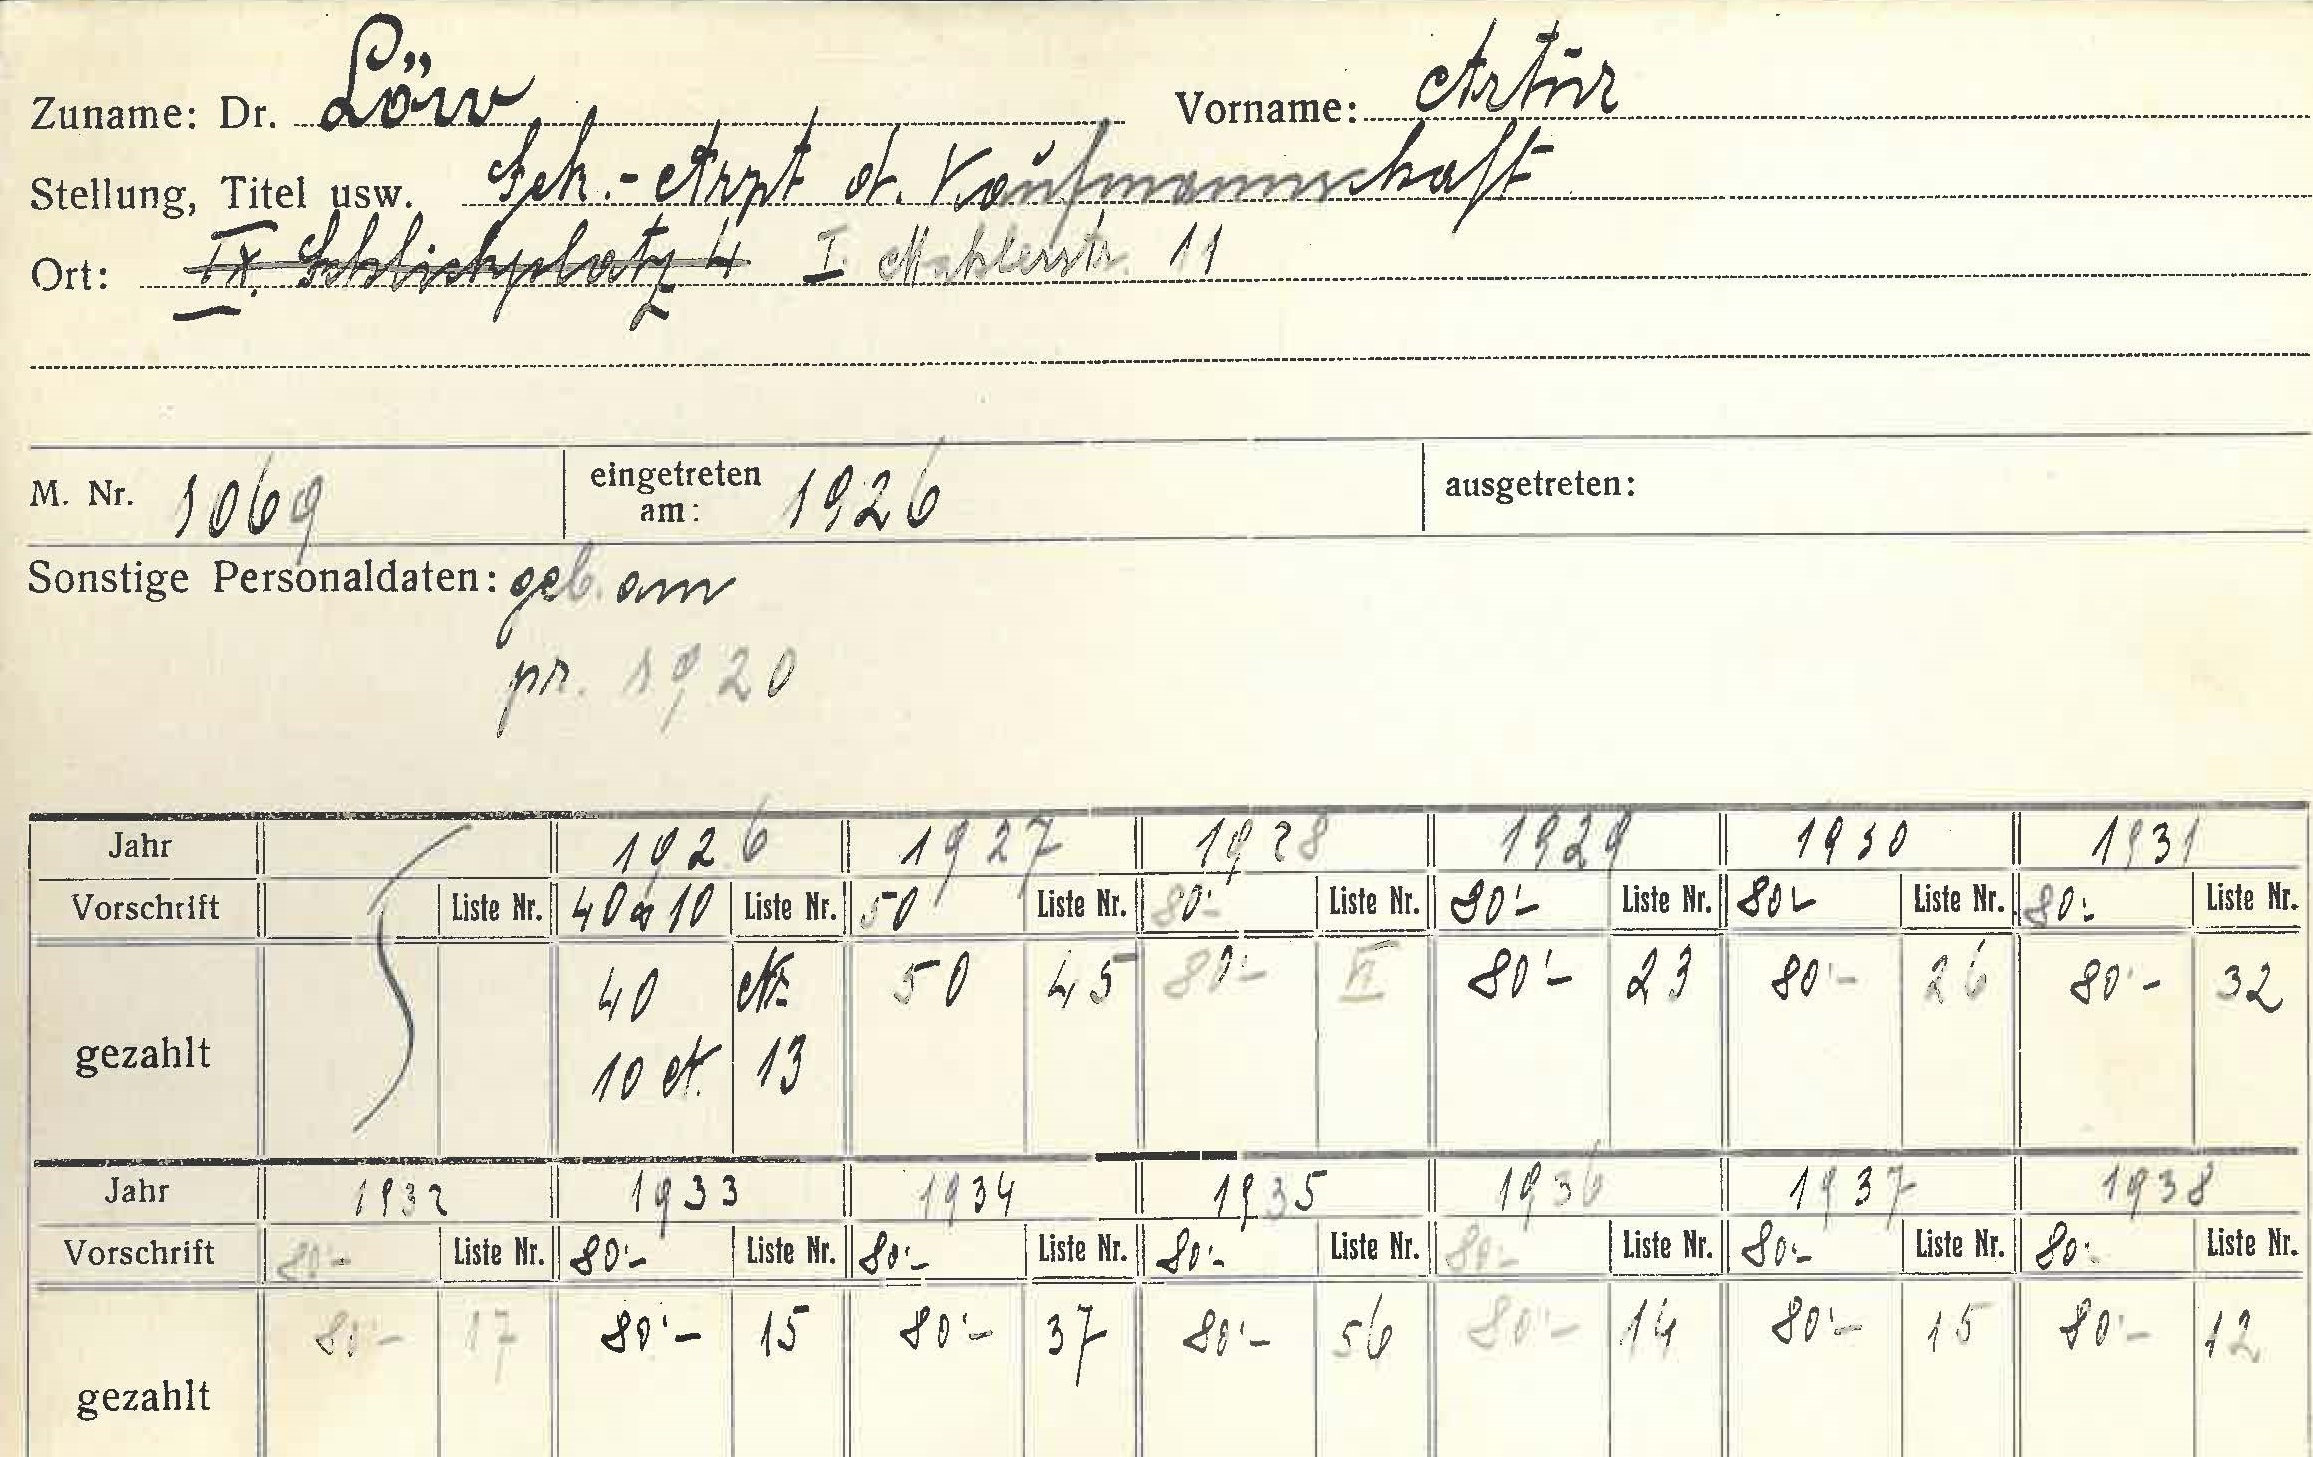 Zuname: Dr. Löw Vorname: Artur
Stellung, Titel usw. Sek.-Arzt d. Kaufmannschaft
Ort: IX. Schlickplatz 4 I. Mahlerstr. 11
M. Nr. 1069 eingetreten am: 1926 ausgetreten:
Sonstige Personaldaten: geb. am
pr. 1920
Jahr 1926 1927 1928 1929 1930 1931
Vorschrift Liste Nr. 40 10 Liste Nr. 50 Liste Nr. 80'- Liste Nr. 80'- Liste Nr. 80'- Liste Nr. 80'- Liste Nr.
gezahlt 40 50 45 80'- VI 80'- 23 80'- 26 80'- 32
10 A. 13
Jahr 1932 1933 1934 1935 1936 1937 1938
Vorschrift 80'- Liste Nr. 80'- Liste Nr. 80'- Liste Nr. 80'- Liste Nr. 80'- Liste Nr. 80'- Liste Nr. 80'- Liste Nr.
gezahlt 80'- 17 80'- 15 80'- 37 80'- 56 80'- 14 80'- 15 80'- 12